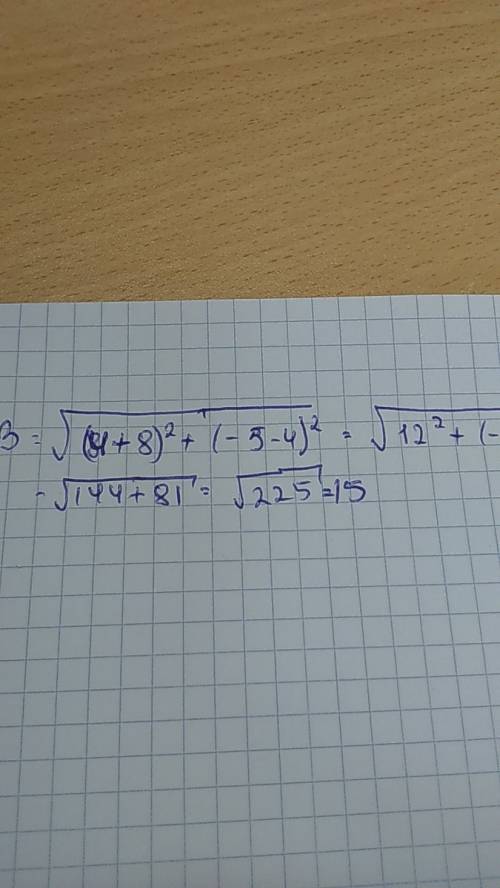 B = √(4+8)² + (-5-4)² = √12² + (-
= √144+81 = √225 = 15